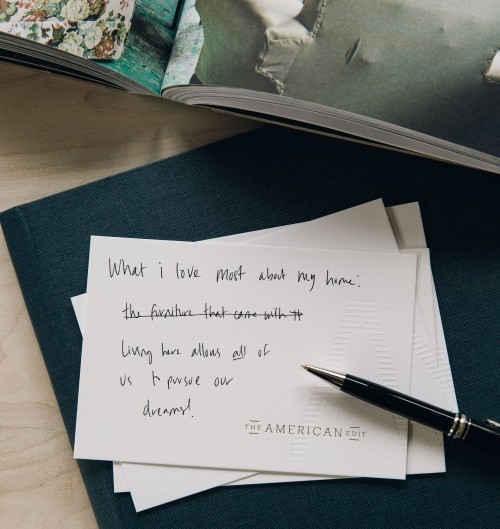 What i love most about my home:
the furniture that came with it
Living here allows all of
us to pursue our
dreams!
THE AMERICAN EDIT